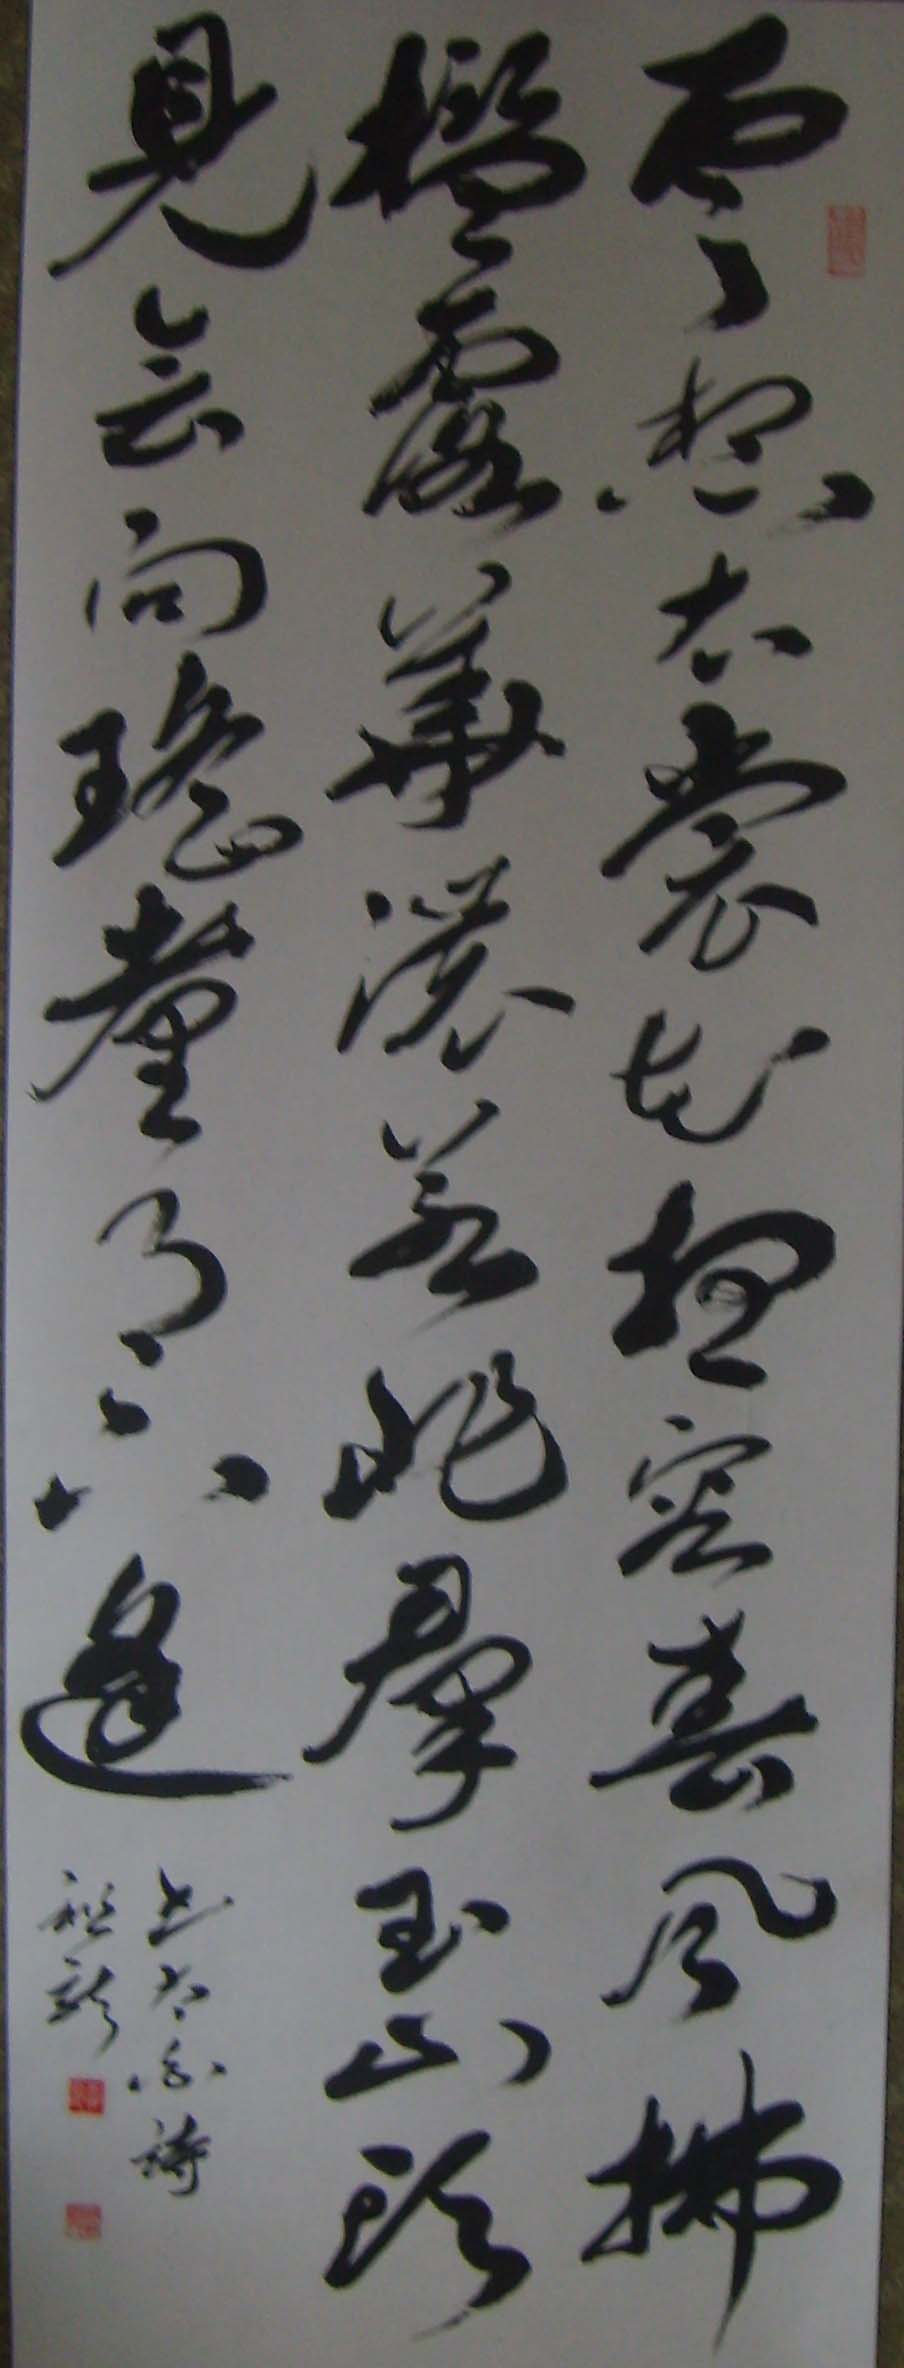 雲想衣裳花想容春風拂
檻露華濃若非羣玉山頭
見會向瑤臺月下逢
書太白詩